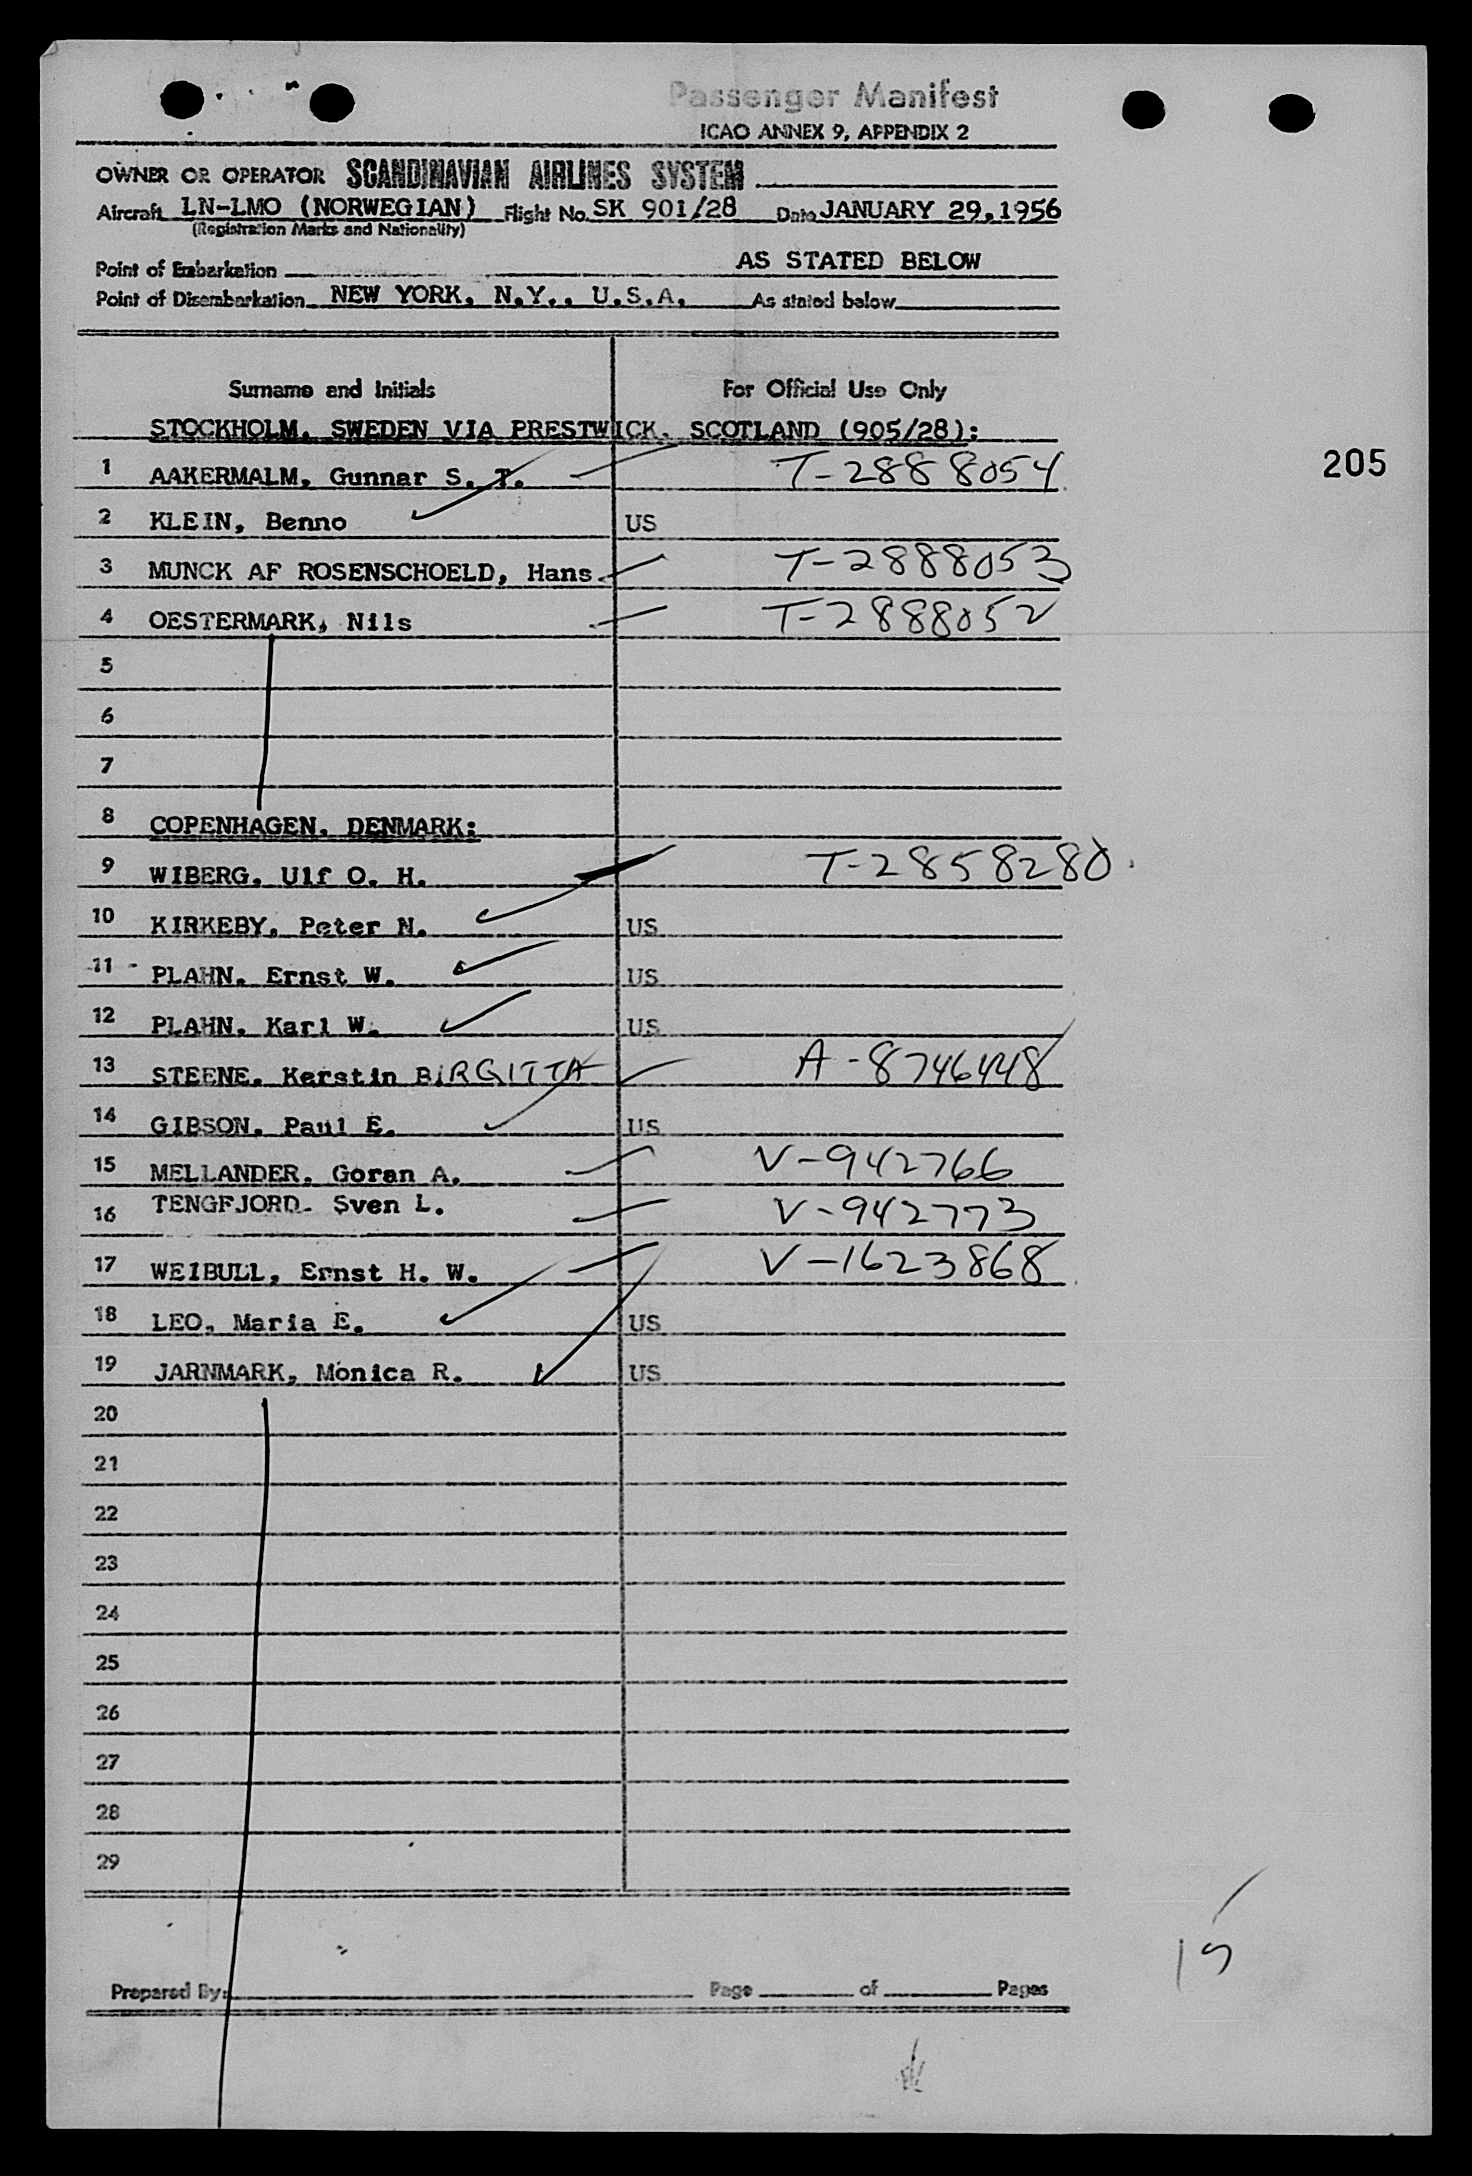 Passenger Manifest
ICAO ANNEX 9, APPENDIX 2
OWNER OR OPERATOR SCANDINAVIAN AIRLINES SYSTEM
Aircraft LN-LMO (NORWEGIAN) Flight No. SK 901/28 Date JANUARY 29, 1956
(Registration Marks and Nationality)
Point of Embarkation AS STATED BELOW
Point of Disembarkation NEW YORK, N.Y., U.S.A. As stated below
Surname and Initials For Official Use Only
STOCKHOLM, SWEDEN VIA PRESTWICK, SCOTLAND (905/28):
1 AAKERMALM, Gunnar S. T. T-2888054
205
2 KLEIN, Benno US
3 MUNCK AF ROSENSCHOELD, Hans T-2888053
4 OESTERMARK, Nils T-2888052
5
6
7
8 COPENHAGEN, DENMARK:
9 WIBERG, Ulf O. H. T-2858280
10 KIRKEBY, Peter N. US
11 PLAHN, Ernst W. US
12 PLAHN, Karl W. US
13 STEENE, Kerstin BIRGITTA A-8746448
14 GIBSON, Paul E. US
15 MELLANDER, Goran A. V-942766
16 TENGFJORD. Sven L. V-942773
17 WEIBULL, Ernst H. W. V-1623868
18 LEO, Maria E. US
19 JARNMARK, Monica R. US
20
21
22
23
24
25
26
27
28
29
15
Prepared By: Page of Pages